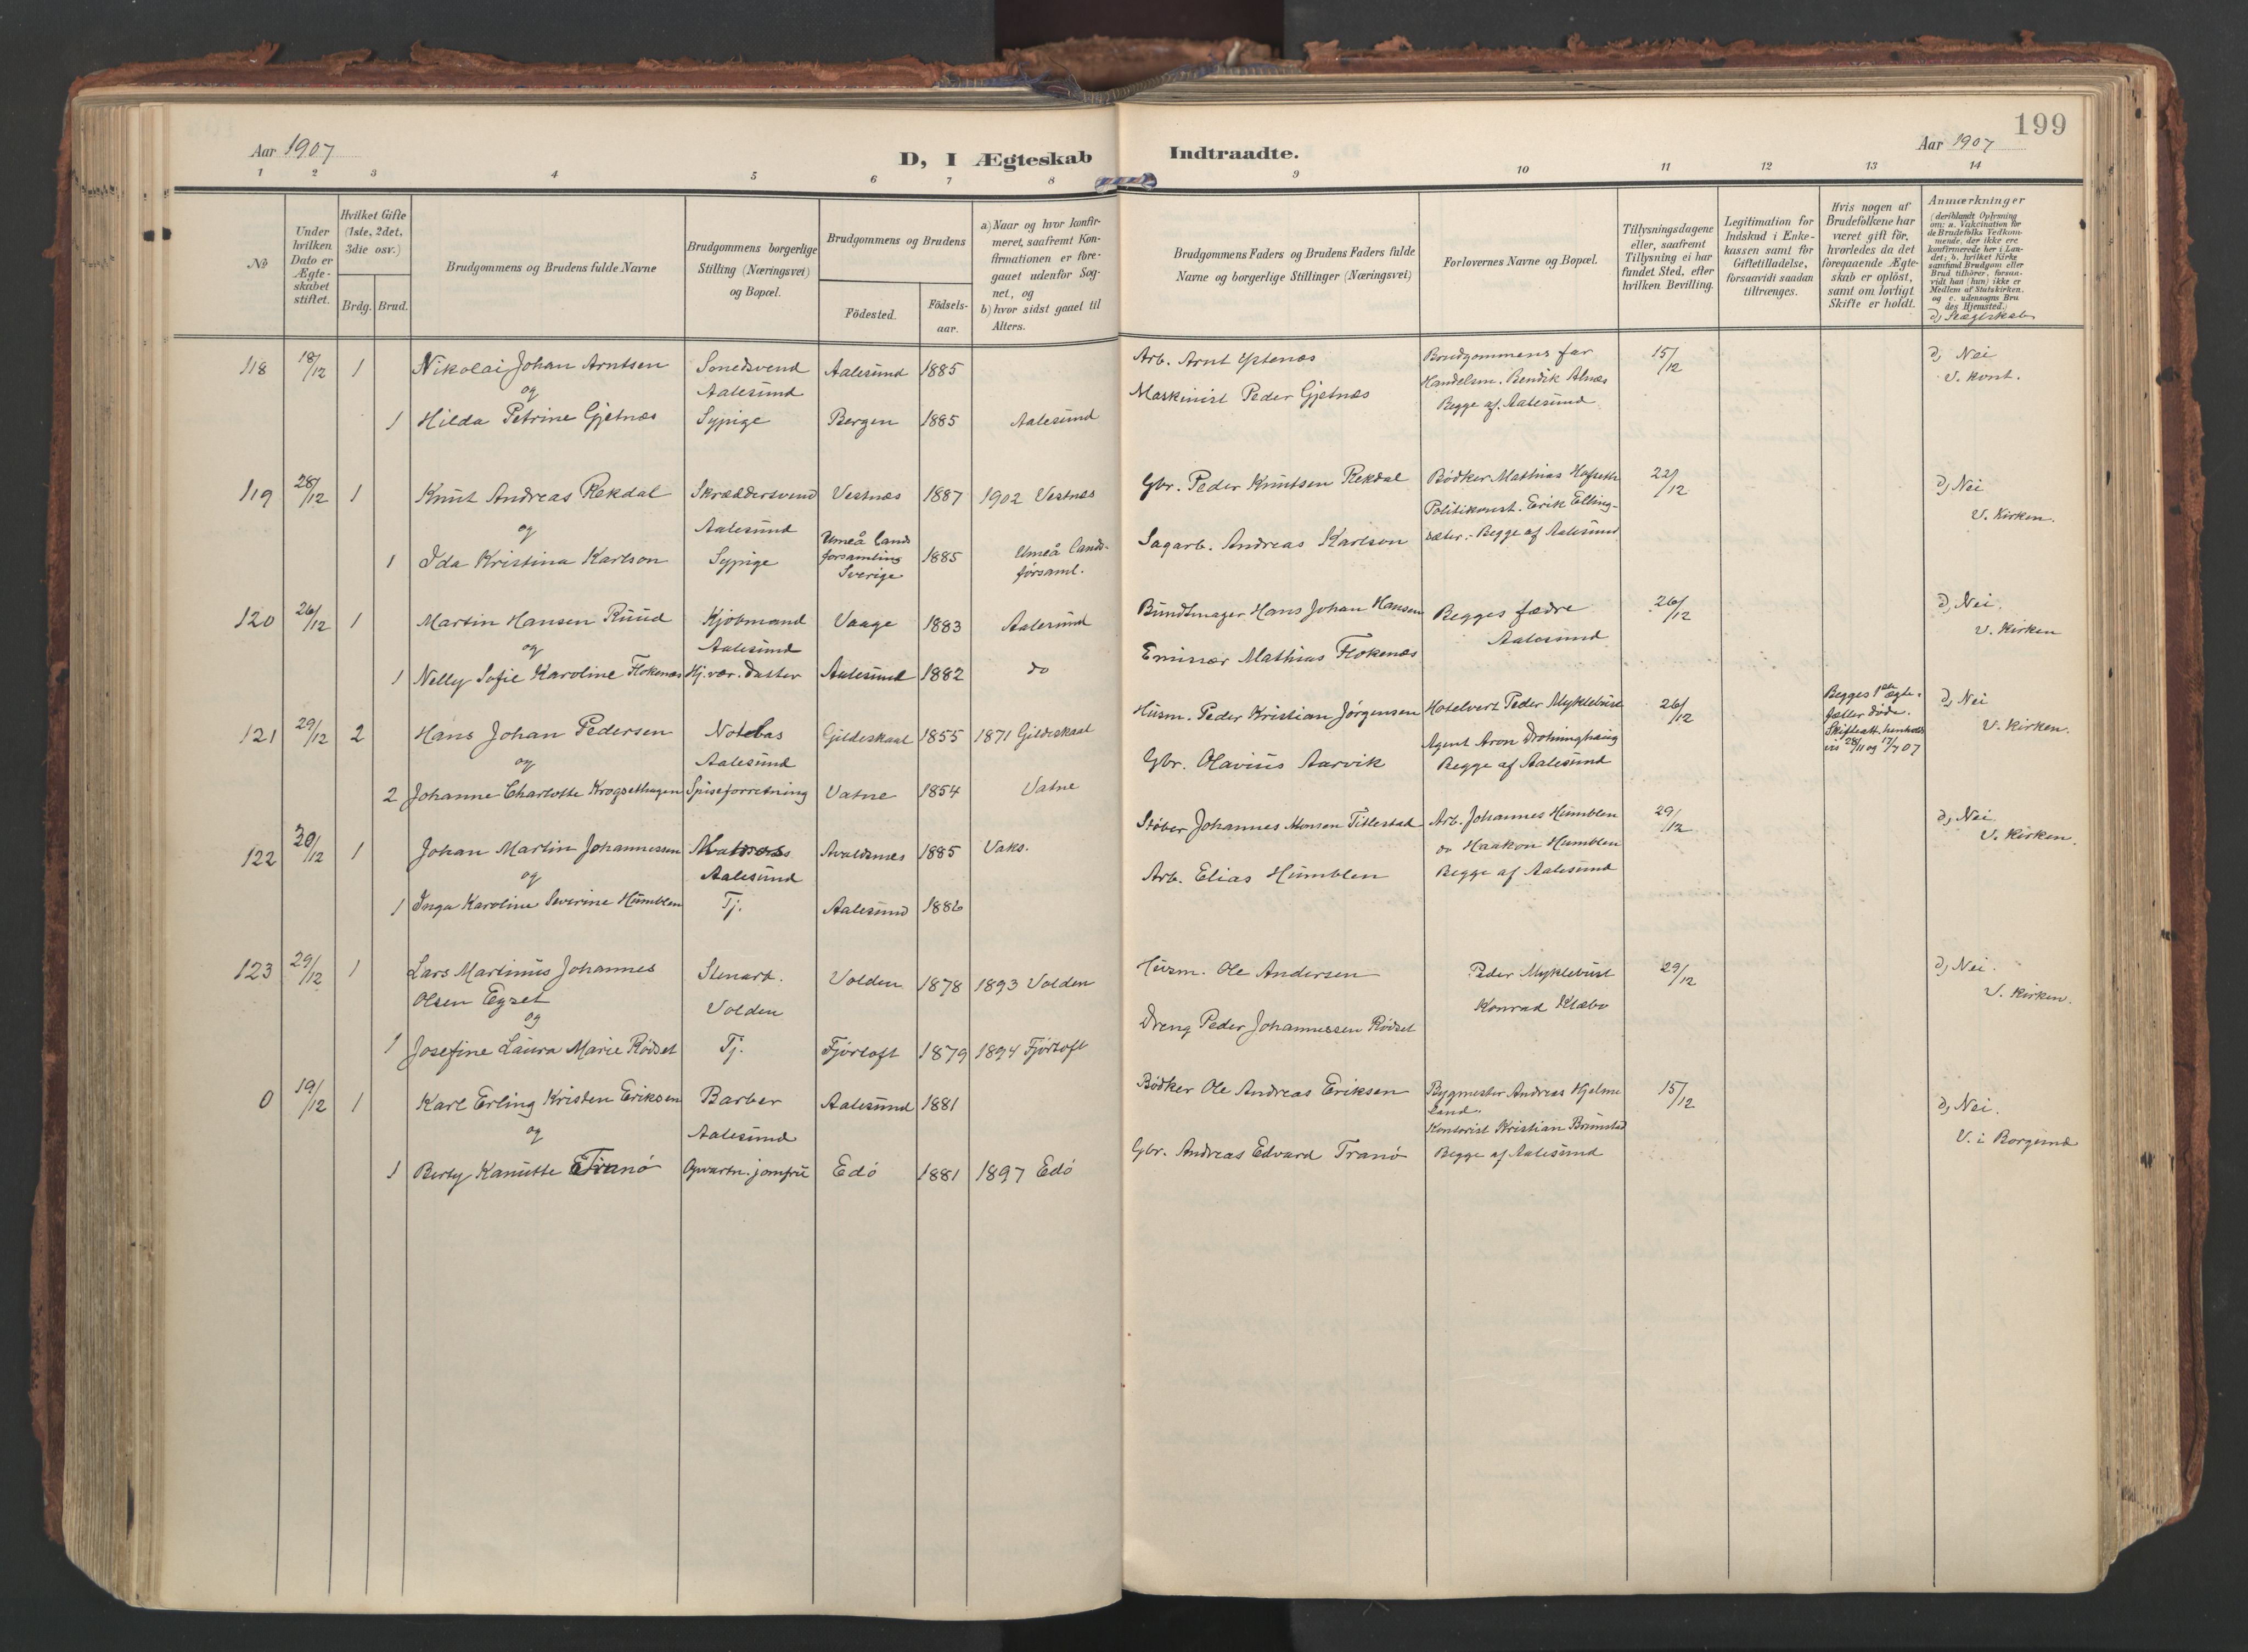 Aar 1907
D, I Ægteskab
Indtraadte.
Aar 1907
199
1 2 3 4 5 6 7 8 9 10 11 12 13 14
No
Under hvilken Dato er Ægteskabet stiftet.
Hvilket Gifte (1ste, 2det, 3die osv.)
Brdg. Brud.
Brudgommens og Brudens fulde Navne
Brudgommens borgerlige Stilling (Næringsvei) og Bopæl.
Brudgommens og Brudens
Födested.
Födsels-aar.
a) Naar og hvor konfir-
meret, saafremt Kon-
firmationen er fore-
gaaet udenfor Sog-
net, og
b) hvor sidst gaaet til
Alters.
Brudgommens Faders og Brudens Faders fulde
Navne og borgerlige Stillinger (Næringsvei)
Forlovernes Navne og Bopæl.
Tillysningsdagene
eller, saafremt
Tillysning ei har
fundet Sted, efter
hvilken Bevilling.
Legitimation for
Indskud i Enke-
kassen samt for
Giftetilladelse,
forsaavidt saadan
tiltrænges.
Hvis nogen af
Brudefolkene har
været gift för,
hvorledes da det
foregaaende Ægte-
skab er oplöst,
samt om lovligt
Skifte er holdt.
Anmærkninger
(deriblandt Oplysning
om: a. Vakcination for
de Brudefolks Vedkom-
mende, der ikke ere
konfirmerede her i Lan-
det; b. hvilket Kirke
samfund Brudgom eller
Brud tilhörer, forsaa-
vidt han (hun) ikke er
Medlem af Statskirken.
og c. udensogns Bru
des Hjemsted.
d) Slægtskab
118 18/12 1 Nikolai Johan Arntsen Smedsvend Aalesund 1885 Arb. Arnt Ystenæs Brudgommens far 15/12 d) Nei
og Aalesund Handelsm. Bendik Alnæs V. Kont.
1 Hilda Petrine Gjetnæs Sypige Bergen 1885 Aalesund Maskinist Peder Gjetnæs Begge af Aalesund
119 28/12 1 Knut Andreas Rekdal Skræddersvend Vestnæs 1887 1902 Vestnæs Gbr. Peder Knutsen Rekdal Bødker Mathias Hofseth 22/12 d) Nei
og Aalesund Politikonst. Erik Elling- V. Kirken.
1 Ida Kristina Karlson Sypige Umeå lands forsamling Sverige 1885 Umeå lands- församl. Sagarb. Andreas Karlson sæter. - Begge af Aalesund
120 26/12 1 Martin Hansen Ruud Kjøbmand Vaage 1883 Aalesund Bundtmager Hans Johan Hansen Begges fædre 26/12 d) Nei.
og Aalesund Aalesund V. Kirken
1 Nelly Sofie Karoline Flokenæs Hj. vær. datter Aalesund 1882 do Emissær Mathias Flokenæs
121 29/12 2 Hans Johan Pedersen Notebas Gildeskaal 1855 1871 Gildeskaal Husm. Peder Kristian Jørgensen Hotelvert Peder Myklebust 26/12 Begges 1ste ægte- d) Nei
og Aalesund Agent Aron Drotninghaug fæller døde. V. Kirken.
2 Johanne Charlotte Krogsethagen Spiseforretning Vatne 1854 Vatne Gbr. Olavius Aarvik Begge af Aalesund Skifteatt. henholds vis 28/11 og 17/7 07
122 30/12 1 Johan Martin Johannessen Avaldsnes 1885 Vaks. Støber Johannes Monsen Titlestad Arb. Johannes Humblen 29/12 d) Nei.
og Aalesund Haakon Humblen V. Kirken.
1 Inga Karoline Severine Humblen Tj. Aalesund 1886 Arb. Elias Humblen Begge af Aalesund
123 29/12 1 Lars Martinus Johannes Stenarb. Volden 1878 1893 Volden Husm. Ole Andersen Peder Myklebust 29/12 d) Nei.
Olsen Egset Volden Konrad Klæbo V. Kirken.
og
1 Josefine Laura Marie Rødset Tj. Fjørtoft 1879 1894 Fjørtoft Dreng Peder Johannessen Rødset
0 19/12 1 Karl Erling Kristen Eriksen Barber Aalesund 1881 Bødker Ole Andreas Eriksen Bygmester Andreas Hjelme 15/12 d) Nei.
land.
og Aalesund Kontorist Kristian Brunstad V. i Borgund
1 Berty Kanutte Tranø Opvartn. jomfru Edø 1881 1897 Edø Gbr. Andreas Edvard Tranø Begge af Aalesund